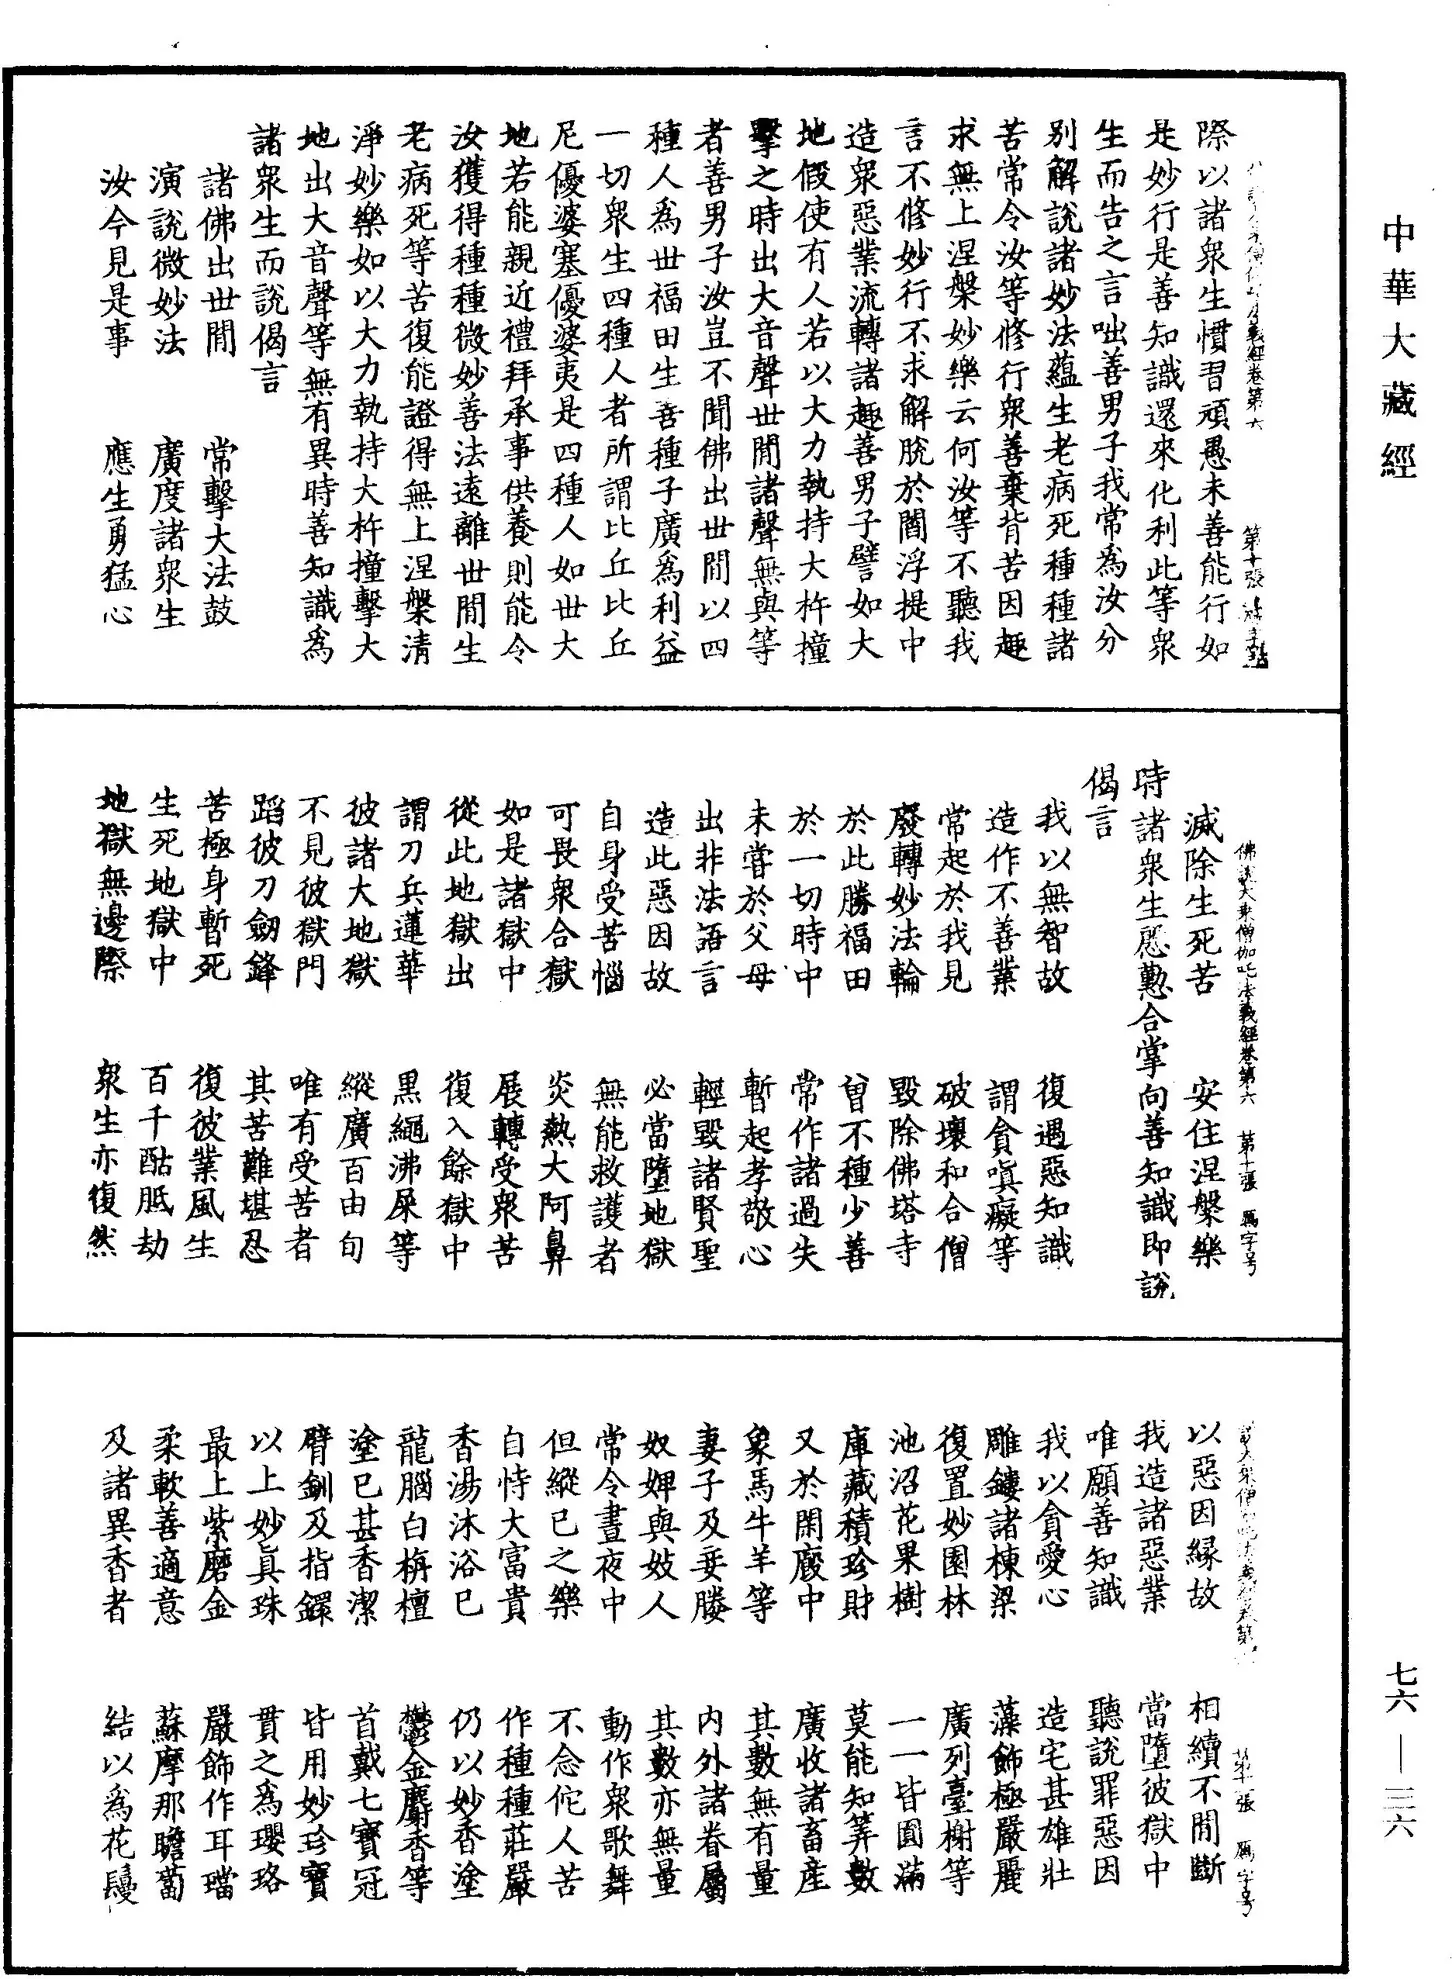 中華大藏經
際以諸衆生慣習頑愚未善能行如
是妙行是善知識還來化利此等衆
生而告之言咄善男子我常為汝分
别解説諸妙法藴生老病死種種諸
苦常令汝等修行衆善棄背苦因趣
求無上涅槃妙樂云何汝等不聽我
言不修妙行不求解脱於閻浮提中
造衆惡業流轉諸趣善男子譬如大
地假使有人若以大力執持大杵撞
擊之時出大音聲世間諸聲無與等
者善男子汝豈不聞佛出世間以四
種人爲世福田生善種子廣爲利益
一切衆生四種人者所謂比丘比丘
尼優婆塞優婆夷是四種人如世大
地若能親近禮拜承事供養則能令
汝獲得種種微妙善法遠離世間生
老病死等苦復能證得無上涅槃清
淨妙樂如以大力執持大杵撞擊大
地出大音聲等無有異時善知識爲
諸衆生而説偈言
諸佛出世間　常擊大法鼓
演説微妙法　廣度諸衆生
汝今見是事　應生勇猛心
佛説大乘僧伽吒法義經卷第六　第十一張　鴈字号
滅除生死苦　安住涅槃樂
時諸衆生慇懃合掌向善知識即説
偈言
我以無智故　復遇惡知識
造作不善業　謂貪嗔癡等
常起於我見　破壞和合僧
廢轉妙法輪　毀除佛塔寺
於此勝福田　曾不種少善
於一切時中　常作諸過失
未嘗於父母　暫起孝敬心
出非法語言　輕毀諸賢聖
造此惡因故　必當墮地獄
自身受苦惱　無能救護者
可畏衆合獄　炎熱大阿鼻
如是諸獄中　展轉受衆苦
從此地獄出　復入餘獄中
謂刀兵蓮華　黑繩沸屎等
彼諸大地獄　縱廣百由旬
不見彼獄門　唯有受苦者
蹈彼刀劒鋒　其苦難堪忍
苦極身暫死　復彼業風生
生死地獄中　百千酤胝劫
地獄無邊際　衆生亦復然
以惡因緣故　相續不間斷
我造諸惡業　當墮彼獄中
唯願善知識　聽説罪惡因
我以貪愛心　造宅甚雄壯
雕鏤諸棟梁　藻飾極嚴麗
復置妙園林　廣列臺榭等
池沼花果樹　一一皆圓滿
庫藏積珍財　莫能知筭數
又於閑廄中　廣收諸畜産
象馬牛羊等　其數無有量
妻子及妾媵　内外諸眷屬
奴婢與妓人　其數亦無量
常令晝夜中　動作衆歌舞
但縱已之樂　不念佗人苦
自恃大富貴　作種種莊嚴
香湯沐浴已　仍以妙香塗
龍腦白栴檀　鬱金麝香等
塗已甚香潔　首戴七寶冠
臂釧及指鐶　皆用妙珍寶
以上妙真珠　貫之爲瓔珞
最上紫磨金　嚴飾作耳璫
柔軟善適意　蘇摩那瞻蔔
及諸異香者　結以爲花鬘
七六—三六